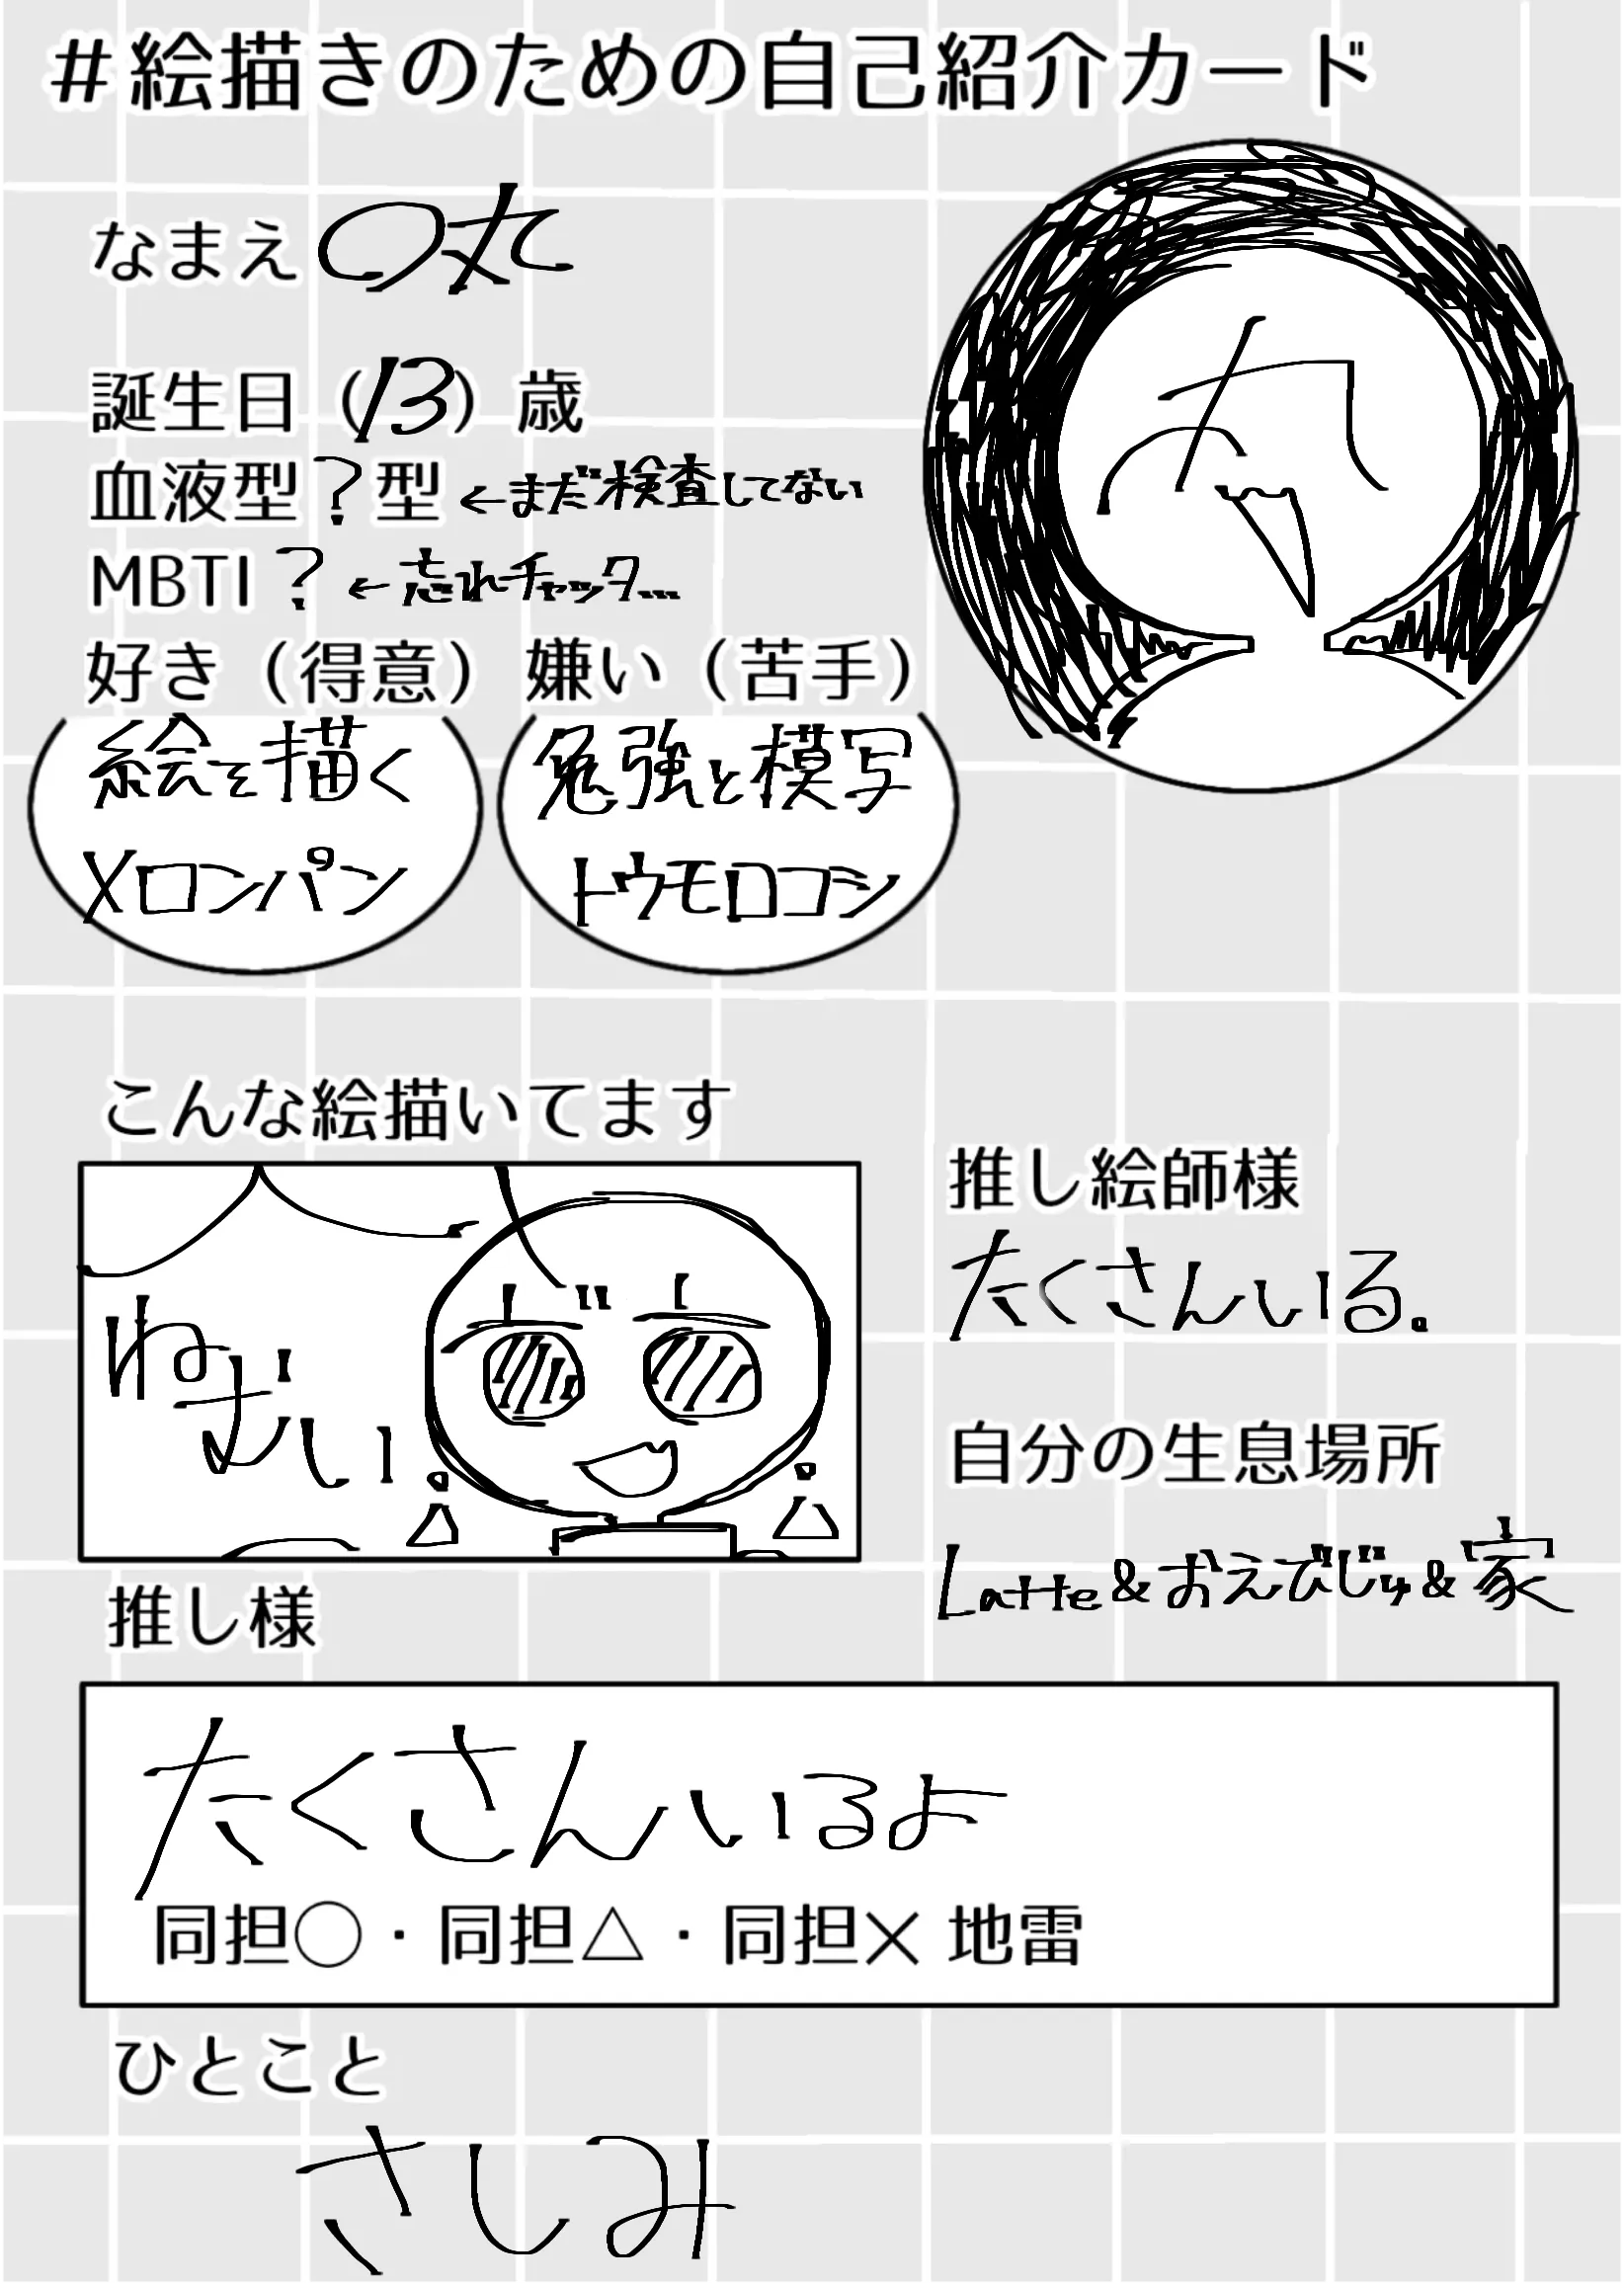 #絵描きのための自己紹介カード
なまえ の丸
誕生日（13）歳
血液型？型 ←まだ検査してない
MBTI？←忘れチャッタ…
好き（得意） 嫌い（苦手）
絵を描く
メロンパン
勉強と模写
トウモロコシ
こんな絵描いてます
ねむい
推し絵師様
たくさんいる。
自分の生息場所
Latte&おえびじゅ&家
推し様
たくさんいるよ
同担○・同担△・同担× 地雷
ひとこと
さしみ